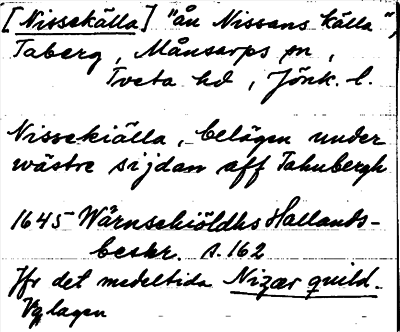 [Nissekälla] "ån Nissans källa",
Taberg, Månsarps sn,
Tveta hd, Jönk. l.
Nissekiälla, belägen under
wästre sijdan aff Tahubergh
1645 Wärnschiöldhs Hallands-
beskr. s. 162
Jfr det medeltida Nizar quild.
Vglagen